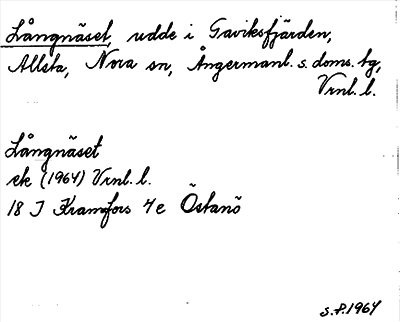 Långnäset, udde i Gaviksfjärden,
Allsta, Nora sn, Ångermanl. s. doms. tg,
Vrnl. l.
Långnäset
ek (1964) Vrnl. l.
18 J Kramfors 4 e Östanö
S.F. 1964